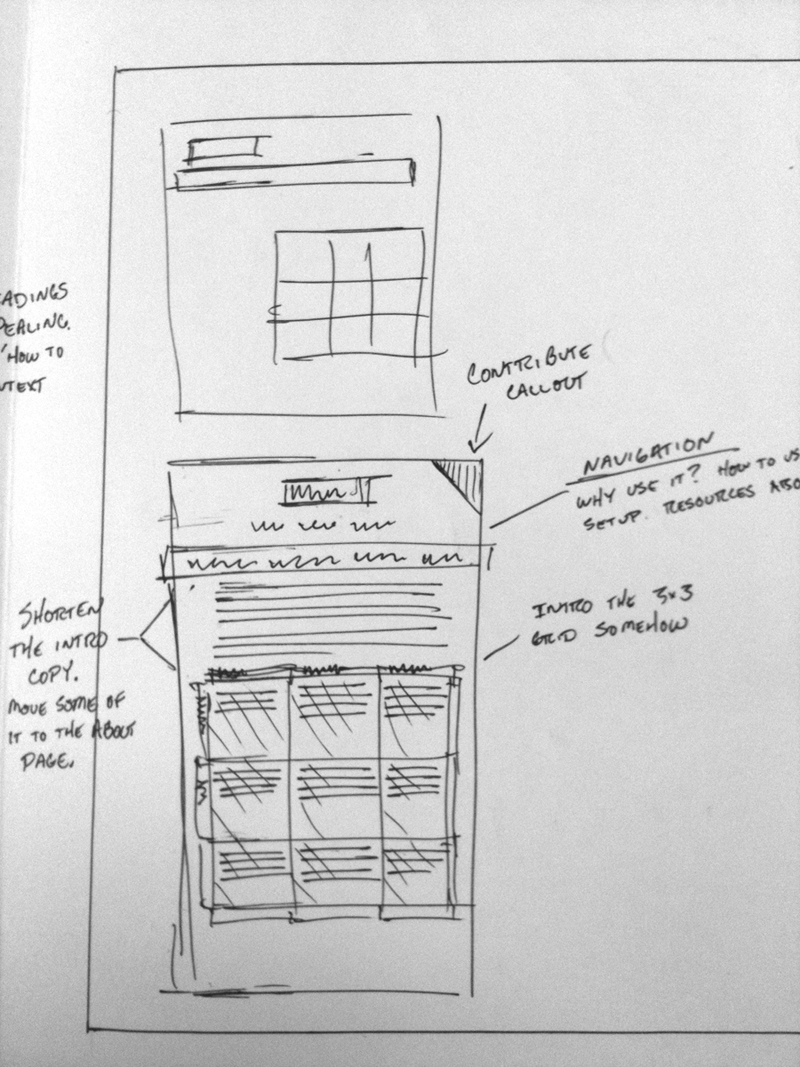 ADINGS
PEALING.
'HOW TO
NTEXT
CONTRIBUTE
CALLOUT
NAVIGATION
WHY USE IT? HOW TO US
SETUP. RESOURCES ABO
SHORTEN
THE INTRO
COPY.
MOVE SOME OF
IT TO THE ABOUT
PAGE.
INTRO THE 3x3
GRID SOMEHOW